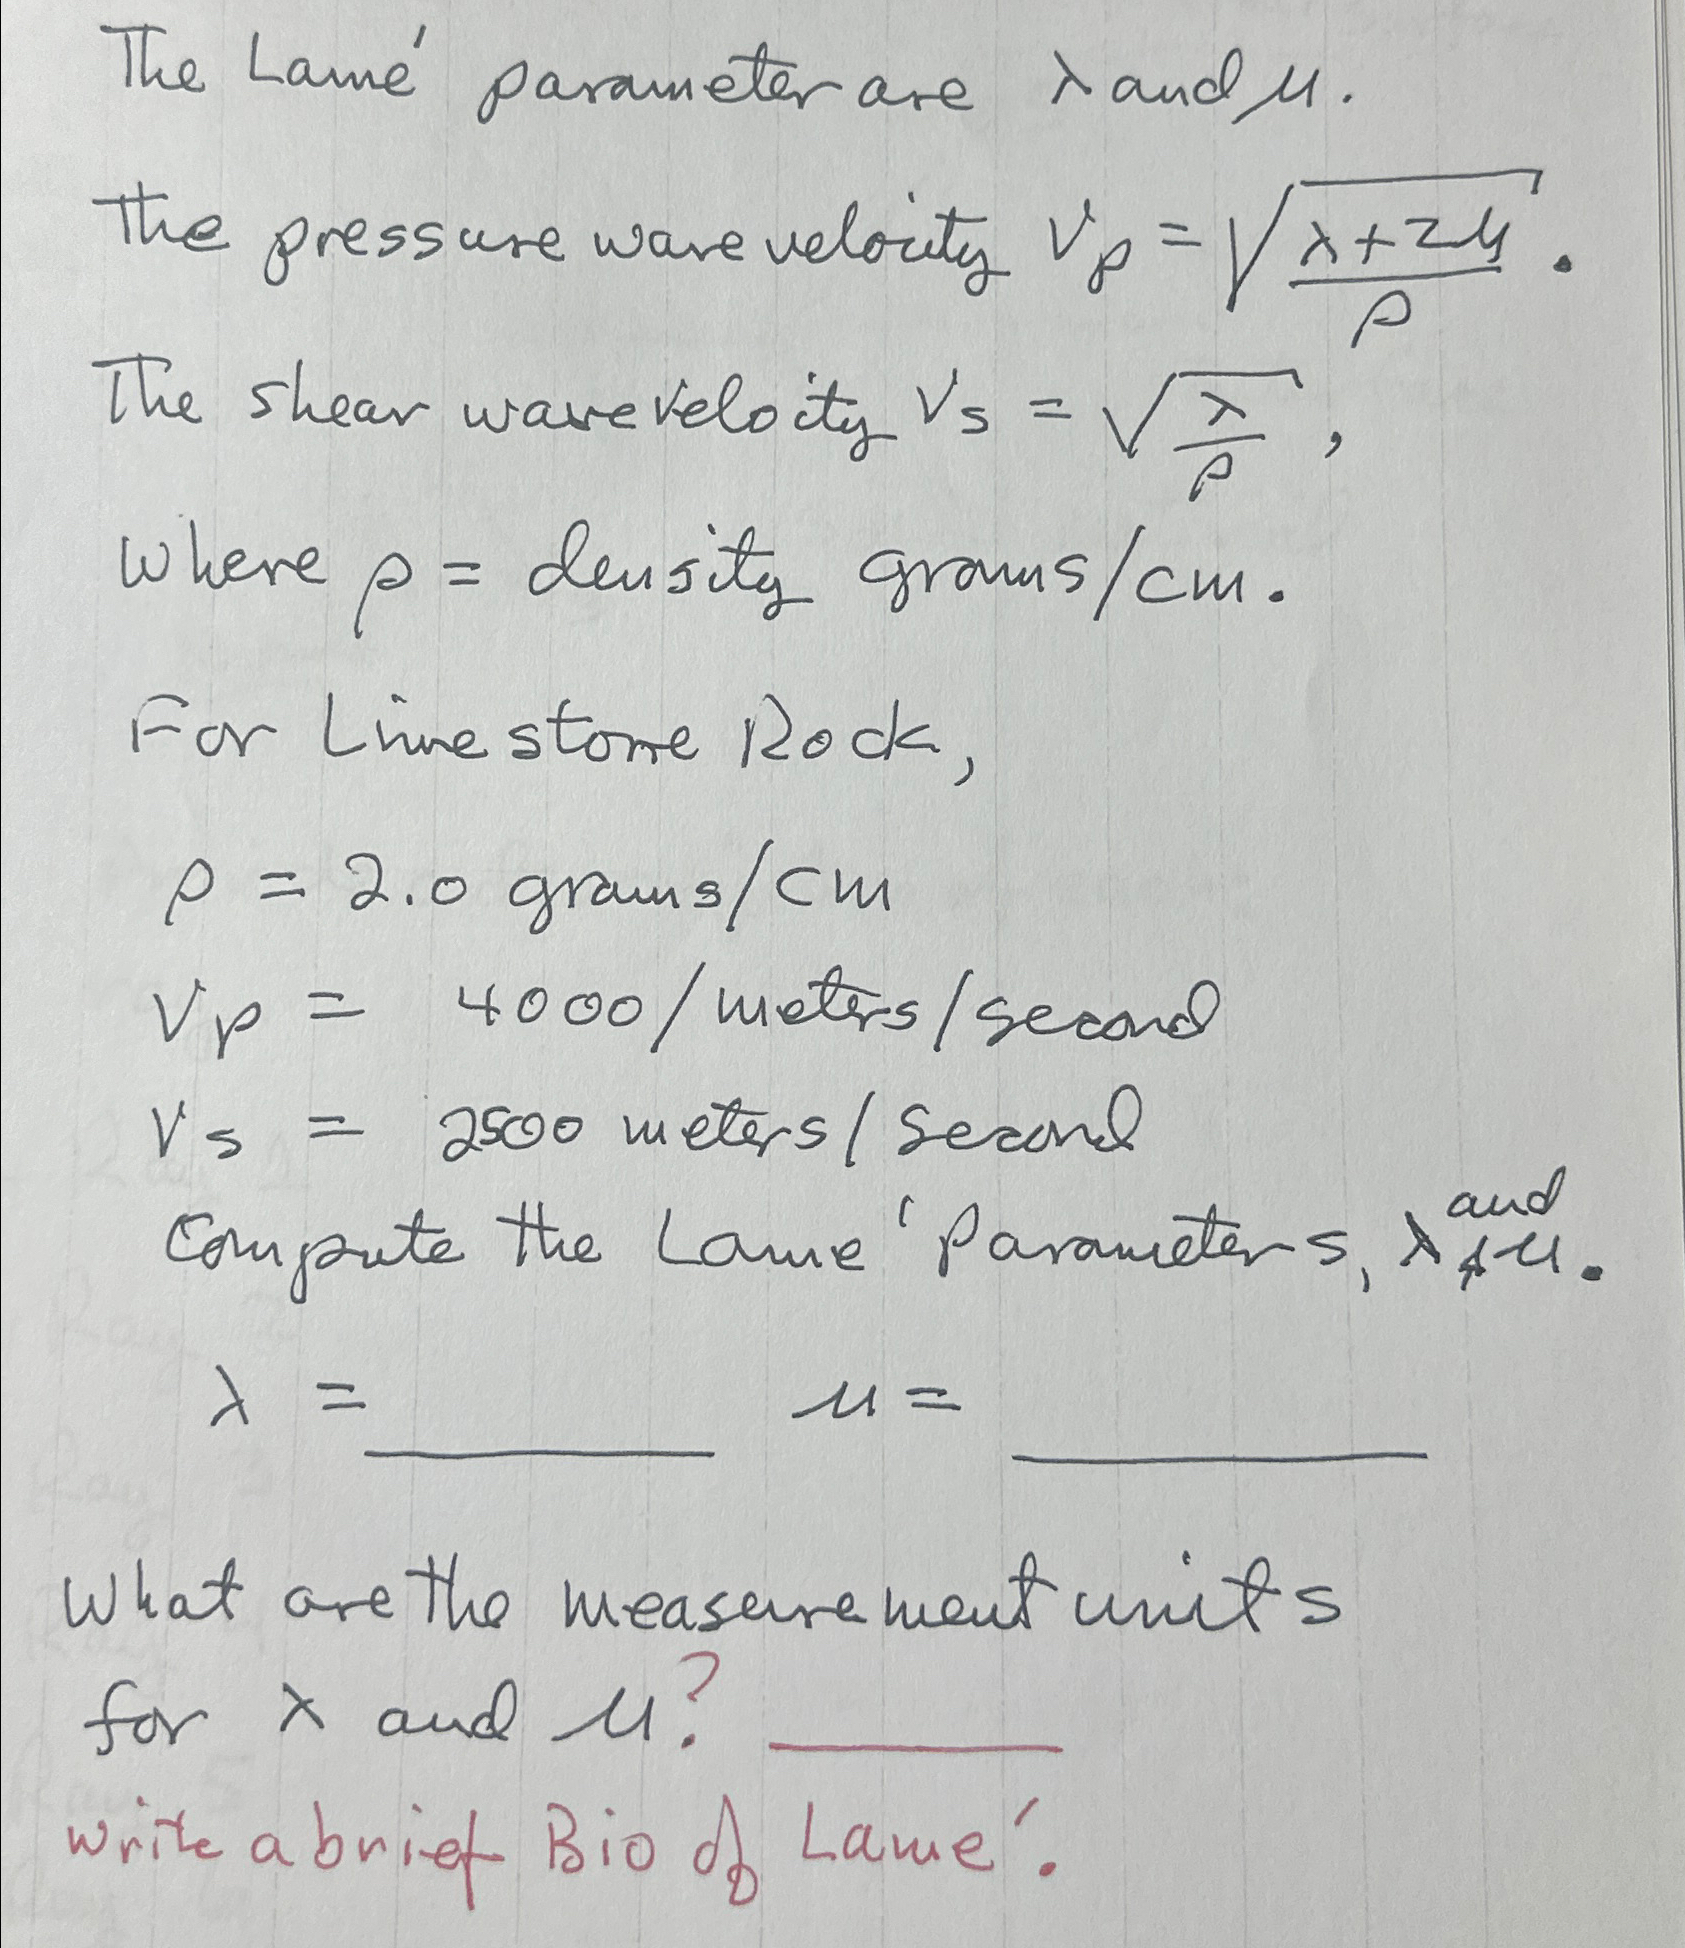 The Lamé parameter are λ and μ.
The pressure wave velocity Vp = √((λ+2μ)/ρ).
The shear wave velocity Vs = √(λ/ρ),
where ρ = density grams/cm.
For Limestone Rock,
ρ = 2.0 grams/cm
Vp = 4000/meters/second
Vs = 2500 meters/second
Compute the Lame' Parameters, λ and μ.
λ = ______ μ = ______
What are the measurement units
for λ and μ? ______
write a brief Bio of Lame'.